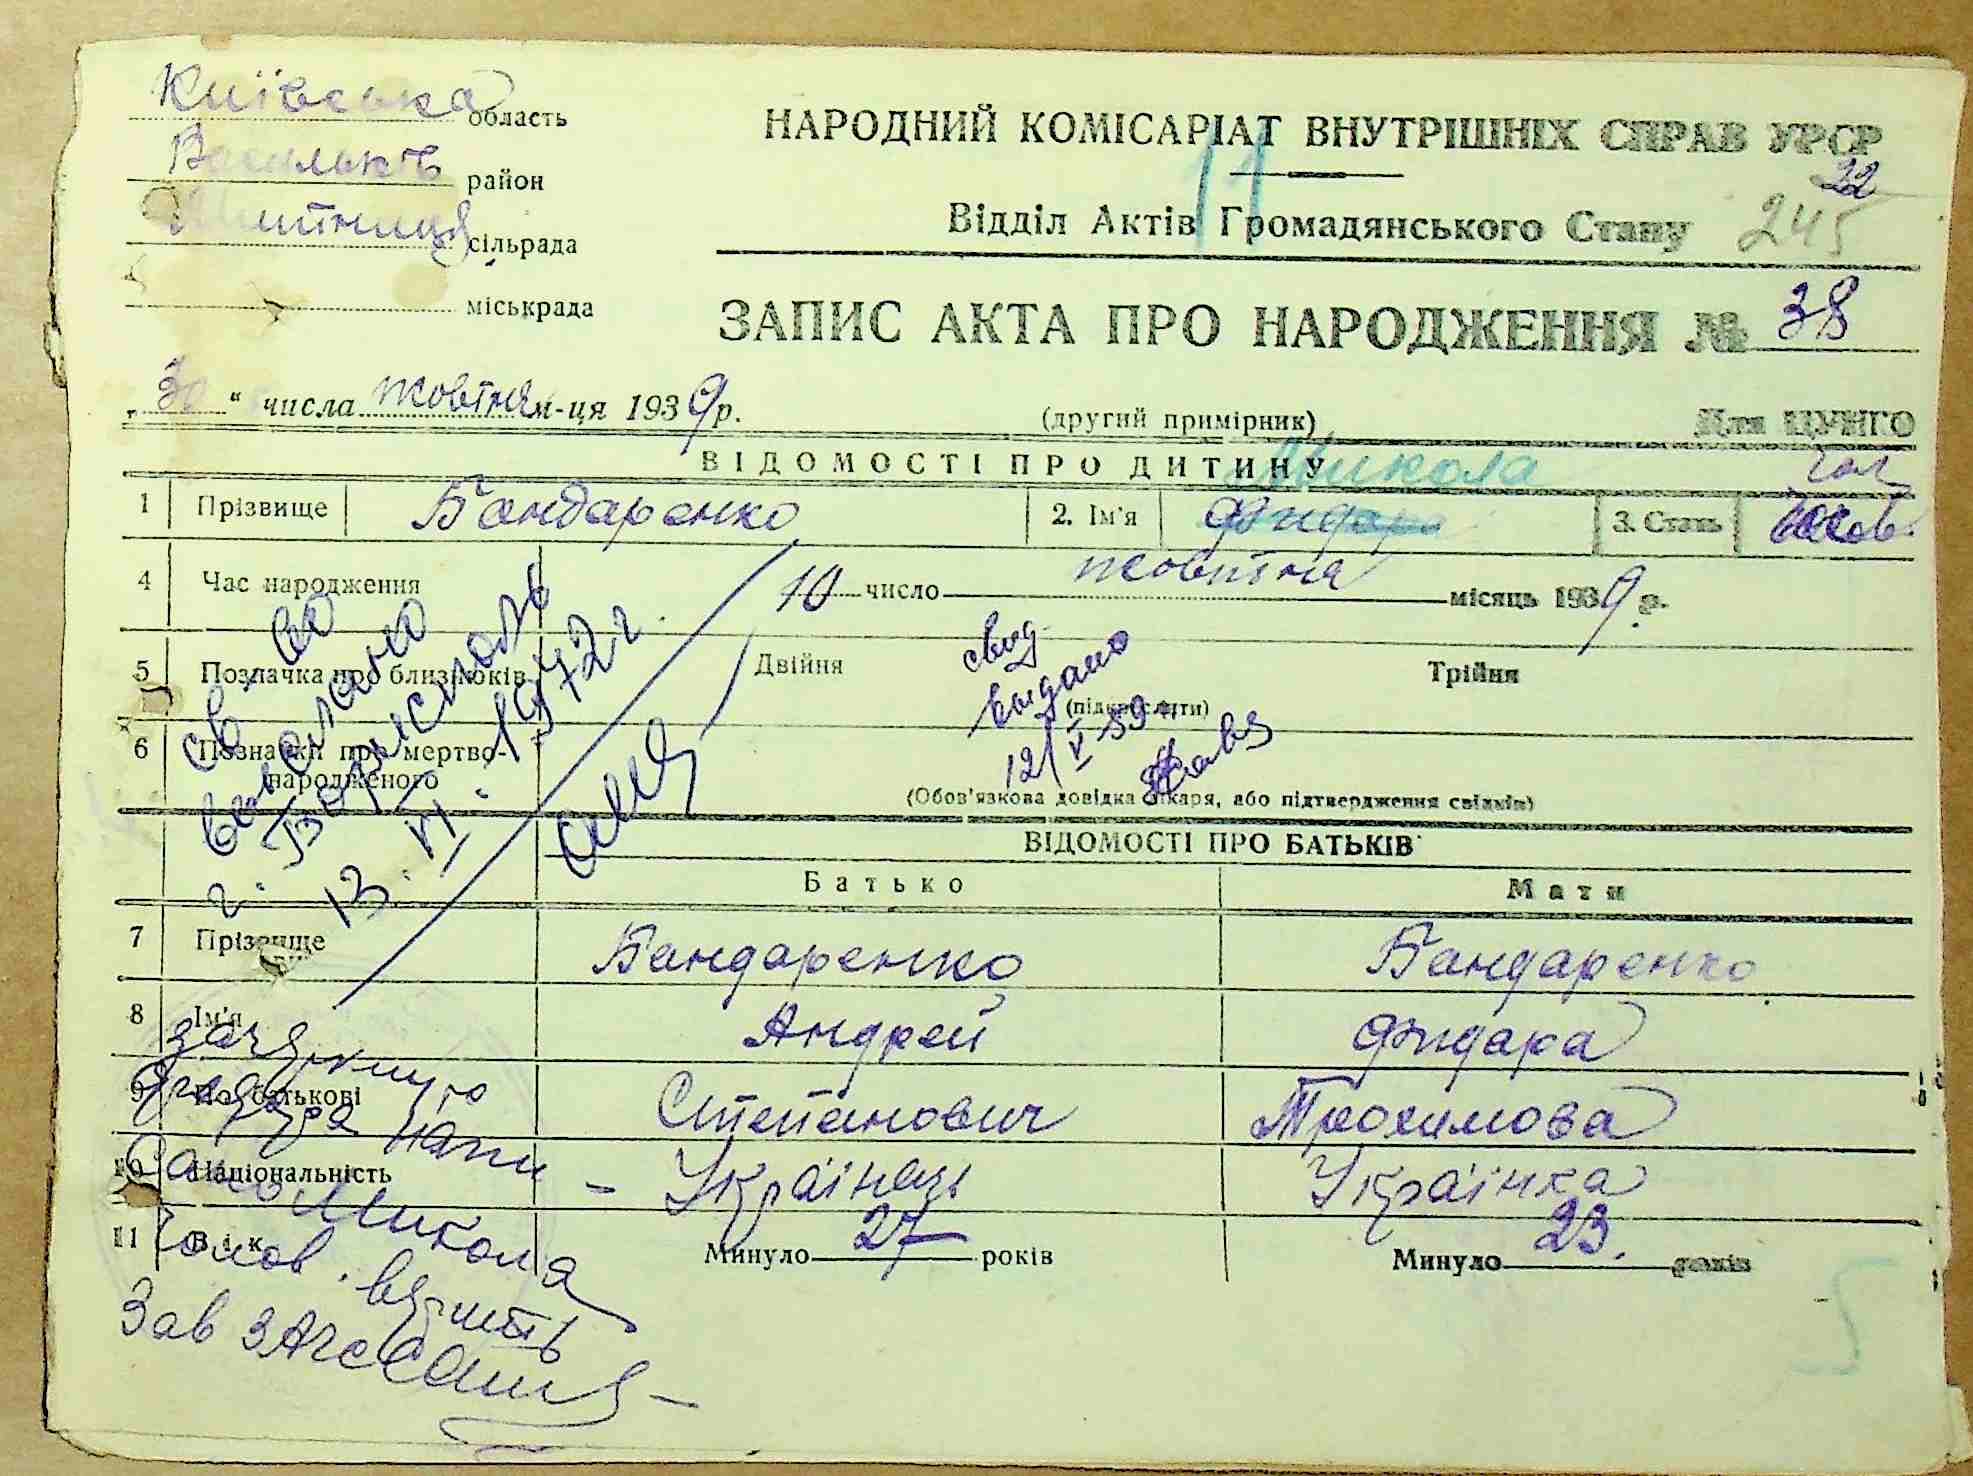 Київська область
Васильків район
Митниця сільрада
міськрада
НАРОДНИЙ КОМІСАРІАТ ВНУТРІШНІХ СПРАВ УРСР
11
32
Відділ Актів Громадянського Стану 245
ЗАПИС АКТА ПРО НАРОДЖЕННЯ № 38
„30“ числа жовтня м-ця 1939 р.
(другий примірник)
Для ЦУНГО
ВІДОМОСТІ ПРО ДИТИНУ
Микола
чол
1 Прізвище Бандаренко 2. Ім'я Фидора 3. Стать
4 Час народження 10 число жовтня місяць 1939 р.
5 Позначка про близнюків Двійня Трійня
(підкреслити)
6 Позначки про мертво-
народженого
(Обов'язкова довідка лікаря, або підтвердження свідків)
св-во
выслано
г. Борисполь
13. VI. 1972 г.
свид.
выдано
12/V-59
ВІДОМОСТІ ПРО БАТЬКІВ
Батько Мати
7 Прізвище Бандаренко Бандаренко
8 Ім'я Андрей Фидара
9 По батькові Степанович Трохимова
10 Національність - Українець Українка
11 Вік Минуло 27 років Минуло 23. років
Микола
Зав ЗАГС
5